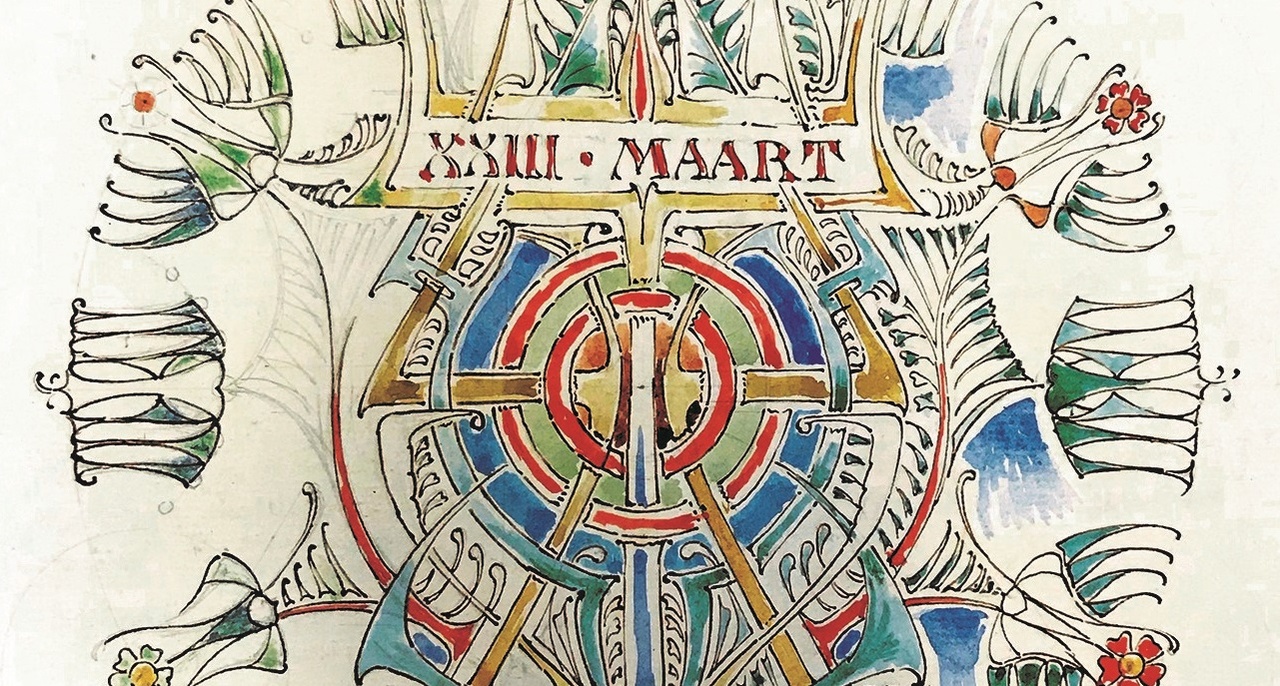 XXIII • MAART